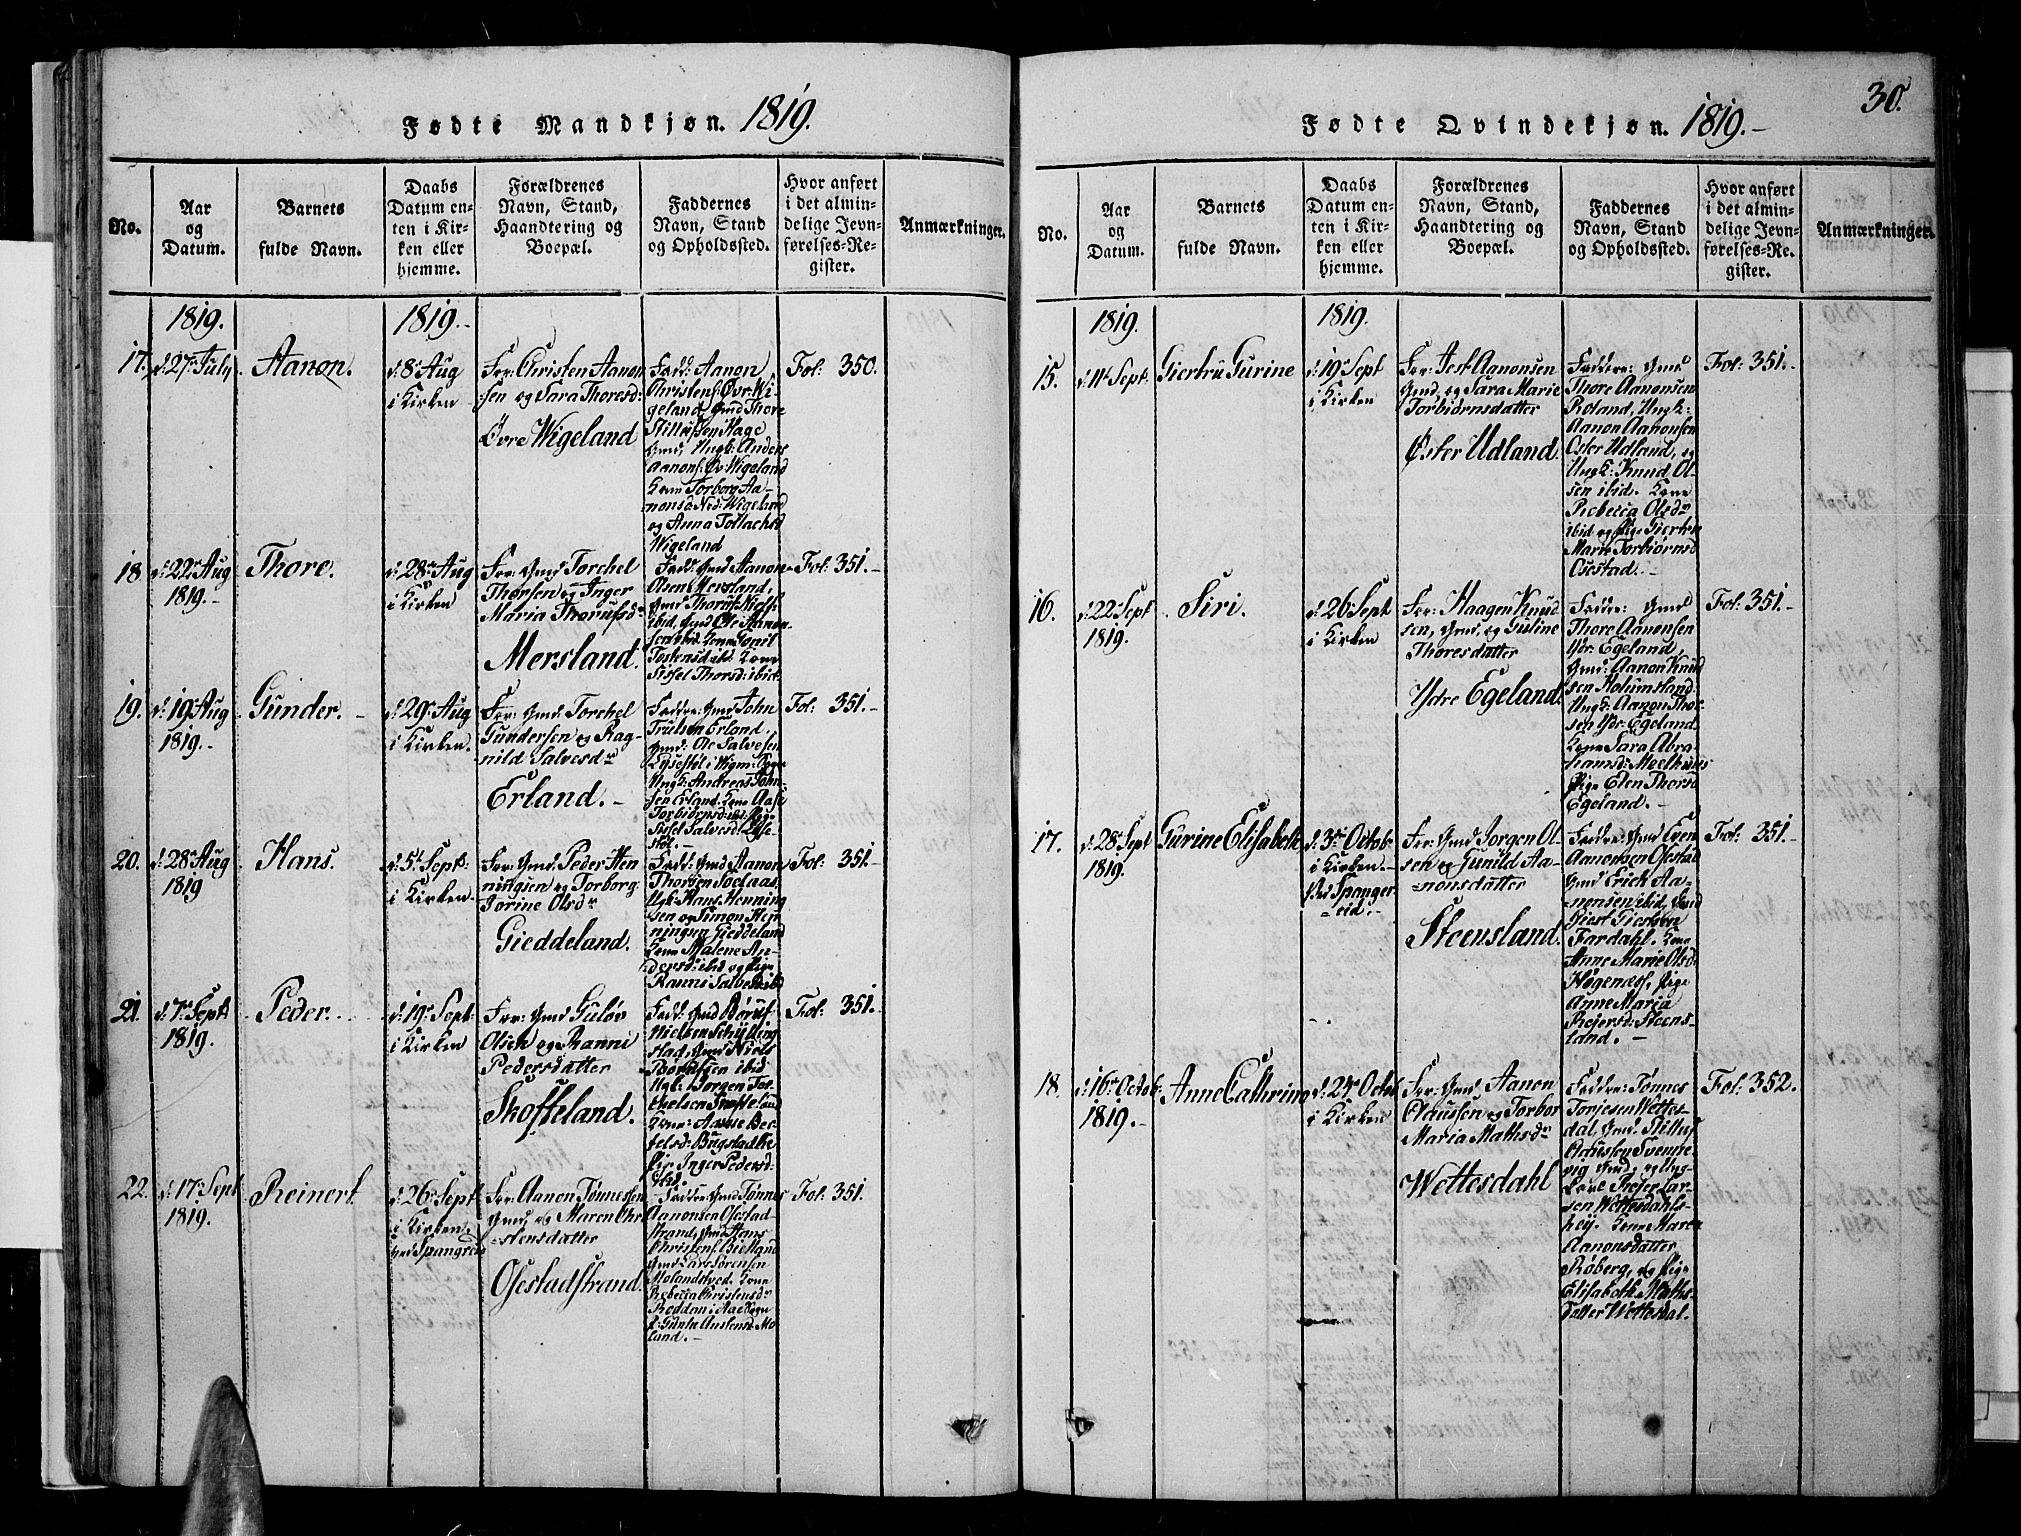 Fødte Mandkjøn. 1819.
No.
Aar
og
Datum.
Barnets
fulde Navn.
Daabs
Datum en-
ten i Kir-
ken eller
hjemme.
Forældrenes
Navn, Stand,
Haandtering og
Boepæl.
Faddernes
Navn, Stand
og Opholdssted.
Hvor anført
i det almin-
delige Jevn-
førelses-Re-
gister.
Anmærkninger.
1819.
1819.
17.
d: 27 July
Aanon.
d: 8 Aug
i Kirken
For: Christen Aanon
sen og Sara Thoresd:
Øvre Wigeland
Fadd: Aanon
Christens: Øvr: Wi-
geland, Gmd Thore
Hage
Gmd, Ungk: Anders
Aanons: Øv: Wigeland
Kone Torborg Aa-
nonsd: Ned: Wigeland
og Anna Tollachsd
Wigeland
Fol: 350.
18
d: 22 Aug
1819.
Thore.
d: 28 Aug
i Kirken
For: Gmd Torchel
Thorsen og Inger
Maria Thorufsd:
Mersland.
Fadd: Gmd Aanon
Olsen Mersland,
Gmd Thoruf Niels:
ibid, Gmd Ole Aanon
sen ibid. Kone
ibid. Kone
Sissel Thorsd: ibid.
Fol: 351.
19.
d: 19 Aug
1819.
Gunder.
d: 29 Aug
i Kirken.
For: Gmd Torchel
Gundersen og Rag-
nild Salvesdr
Erland.
Faddre: Gmd John
Trulsen Erland,
Gmd: Ole Salvesen
Ungk: Andreas John-
sen Erland. Kone Aase
Torbiørnsd: ibid. Pige
Sissel Salvesd: Lyse-
støl.
Fol: 351.
20.
d: 28 Aug
1819
Hans.
d: 5 Sept:
i Kirken
For: Gmd Peder Hen
ningsen og Torborg
Jorine Olsdr
Gieddeland.
Fadd: Gmd Aanon
Thorsen
Ugk: Hans Henning
sen og Simon Hen
ningsen Gieddeland
Kone Malene An-
dersd: ibid og Pige
Ranni Salvesd: ibid
Fol: 351.
21.
d: 7 Sept:
1819.
Peder.
d: 19 Sept:
i Kirken
For: Gmd Guløv
Olsen og Ranni
Pedersdatter
Skofteland.
Fadd: Gmd Børuf
Nielsen Schylling
stad, Gmd Niels
Børufsen ibid
Ugk: Jorgen Tor-
chelsen Skofteland
Kone: Aasne Ber-
telsd:
Pige Inger Pedersd:
ibid.
Fol: 351.
22.
d: 17 Sept
1819.
Reinert
d: 26 Sept
i Kirken
ved Spangreid
For: Aanon Tønnessen
Gmd, og Maren Chri
stensdatter
Osestadstrand.
Faddre: Gmd Tønnes
Aanonsen Osestad-
strand, Gmd
Christens: Bietland
Gmd Lars Sørensen
Kone
Rebecca Christensdr
Roddan i Aae Sogn
Pige:
land.
Fol: 351.
30.
Fødte Qvindekjøn. 1819.
No.
Aar
og
Datum.
Barnets
fulde Navn.
Daabs
Datum en-
ten i Kir-
ken eller
hjemme.
Forældrenes
Navn, Stand,
Haandtering og
Boepæl.
Faddernes
Navn, Stand
og Opholdssted.
Hvor anført
i det almin-
delige Jevn-
førelses-Re-
gister.
Anmærkninger.
1819.
1819.
15.
d: 11 Sept.
Giertru Gurine
d: 19 Sept
i Kirken
For: Jest Aanonsen
Gmd, og Sara Marie
Torbiørnsdatter
Øster Udland.
Faddre: Gmd
Thore Aanonsen
Roland, Ungk:
Aanon Aanonsen
Oster Udland, og
Ungk: Knud Ol-
sen ibid. Kone
Rebecca Olsdr
ibid og Pige Giertru
Marie Torbiørnsd
Osestad.
Fol: 351.
16.
d: 22 Sept
1819.
Siri.
d: 26 Sept
i Kirken
For: Haagen Knud
sen, Gmd, og Guline
Thoresdatter
Ydre Egeland.
Faddre: Gmd
Thore Aanonsen
Ydr: Egeland,
Gmd: Aanon Knud
sen Holumsland.
Ungk: Aanon Thor-
sen Ydr: Egeland.
Kone Sara Abra-
hamsd: Meelhuus
Pige Elen Thorsd
Egeland.
Fol: 351.
17.
d: 28 Sept
1819.
Gurine Elisabeth
d: 3 Octob
i Kirken
Ved Spanger
eid.
For: Gmd Jorgen Ol-
sen og Gunild Aa-
nonsdatter
Steensland.
Faddre: Gmd Even
Aanonsen Osestad
Gmd Erich Aa-
nonsen ibid, Gmd
Giest
Fardahl. Kone
Anne Marie Olsd:
Høgenæss, Pige
Anne Maria
Rejersd: Steens-
land.
Fol: 351.
18.
d: 16 Octob:
1819.
Anne Cathrine
d: 24 Octob
i Kirken
For: Gmd Aanon
Olaussen og Torbor
Maria Mathisdr
Wettesdahl
Faddre: Tønnes
Torjesen Wettes-
dal, Gmd.
Olaussen Svenne-
vig Gmd, og Ung-
karl Rejer Lar-
sen Wettesdahls-
hey. Kone Maren
Aanonsdatter
Røberg, og Pige
Elisabeth Mathis-
datter Wettesdal.
Fol: 352.